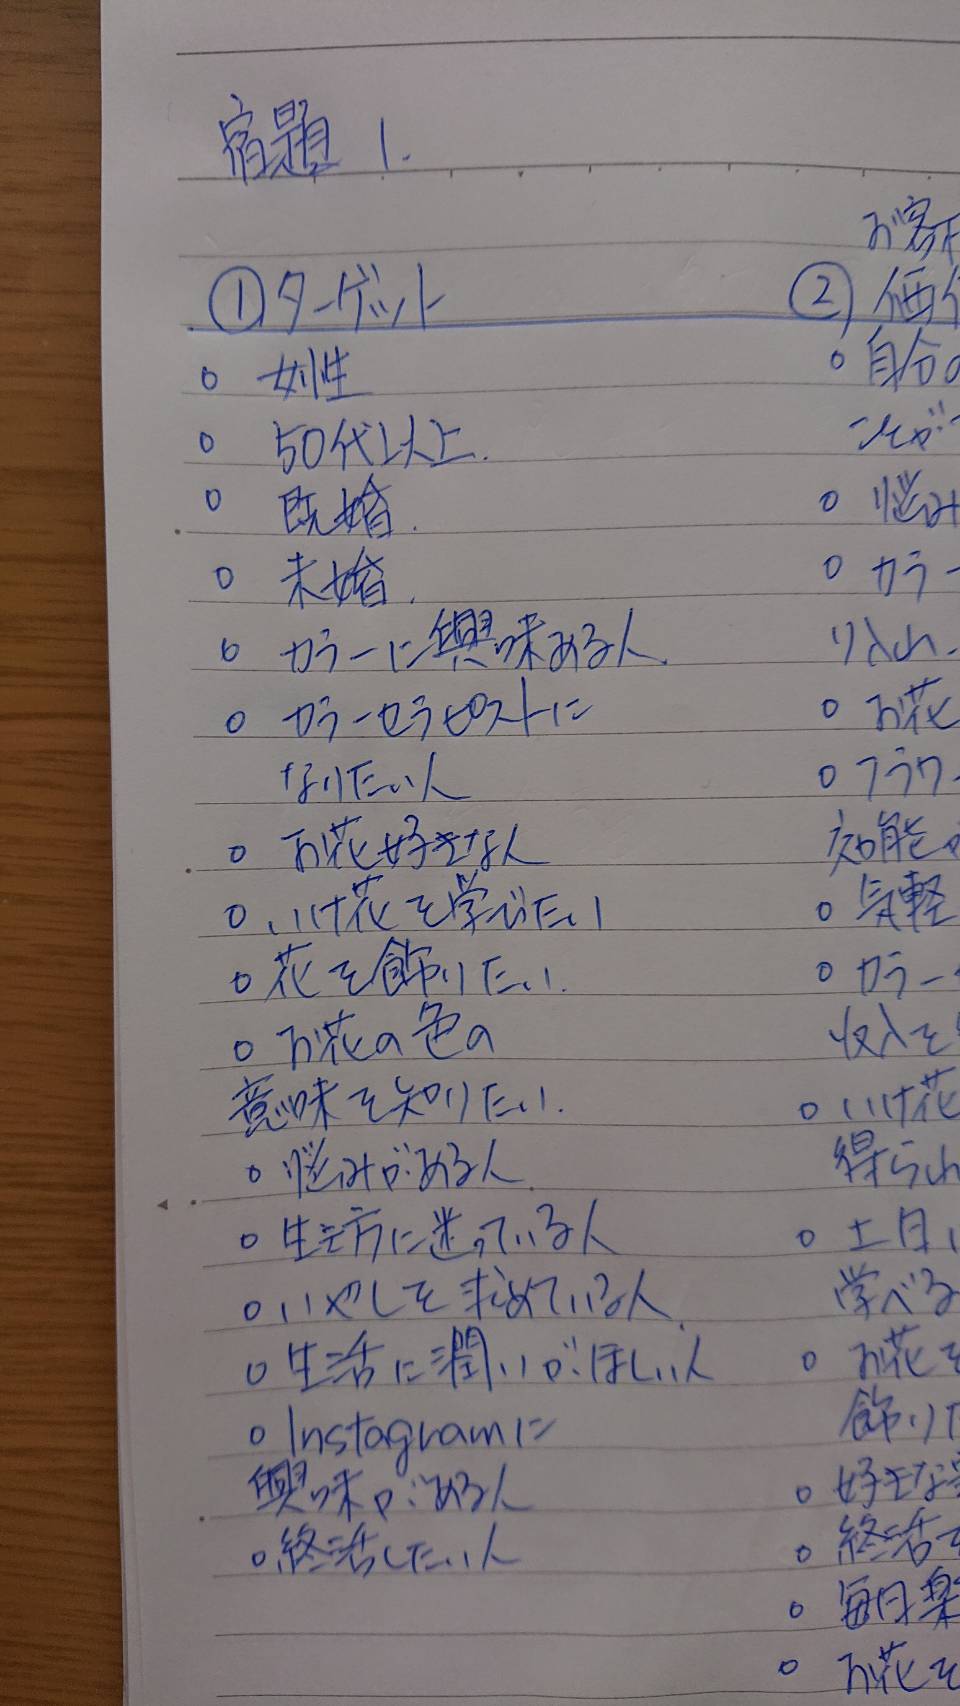 宿題 1.
①ターゲット
○ 女性
○ 50代以上.
○ 既婚.
○ 未婚.
○ カラーに興味ある人.
○ カラーセラピストに
なりたい人
○ お花好きな人
○ いけ花を学びたい
○ 花を飾りたい.
○ お花の色の
意味を知りたい.
○ 悩みがある人.
○ 生き方に迷っている人
○ いやしを求めている人.
○ 生活に潤いがほしい人
○ Instagramに
興味がある人
○ 終活したい人
お客
② 価
○ 自分の
ことが
○ 悩み
○ カラー
り入れ
○ お花
○ フラワー
効能
○ 気軽
○ カラー
収入を
○ いけ花
得られ
○ 土日
学べる
○ お花を
飾りた
○ 好きな
○ 終活
○ 毎日楽
○ お花を